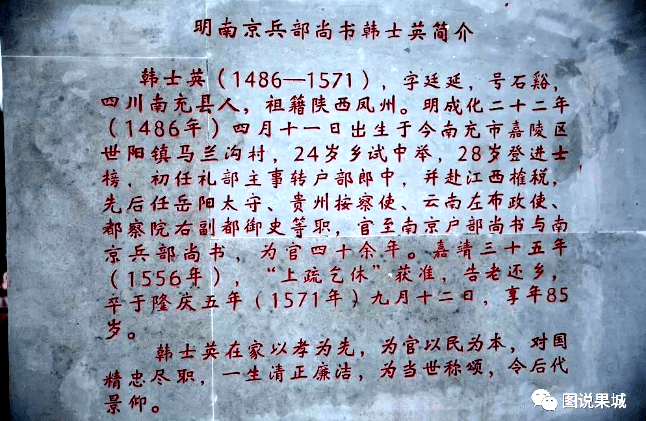 明南京兵部尚书韩士英简介
韩士英（1486—1571），字廷延，号石谿，
四川南充县人，祖籍陕西凤州。明成化二十二年
（1486年）四月十一日出生于今南充市嘉陵区
世阳镇马兰沟村，24岁乡试中举，28岁登进士
榜，初任礼部主事转户部郎中，并赴江西榷税，
先后任岳阳太守、贵州按察使、云南左布政使、
都察院右副都御史等职，官至南京户部尚书与南
京兵部尚书，为官四十余年。嘉靖三十五年
（1556年），“上疏乞休”获准，告老还乡，
卒于隆庆五年（1571年）九月十二日，享年85
岁。
韩士英在家以孝为先，为官以民为本，对国
精忠尽职，一生清正廉洁，为当世称颂，令后代
景仰。
图说果城